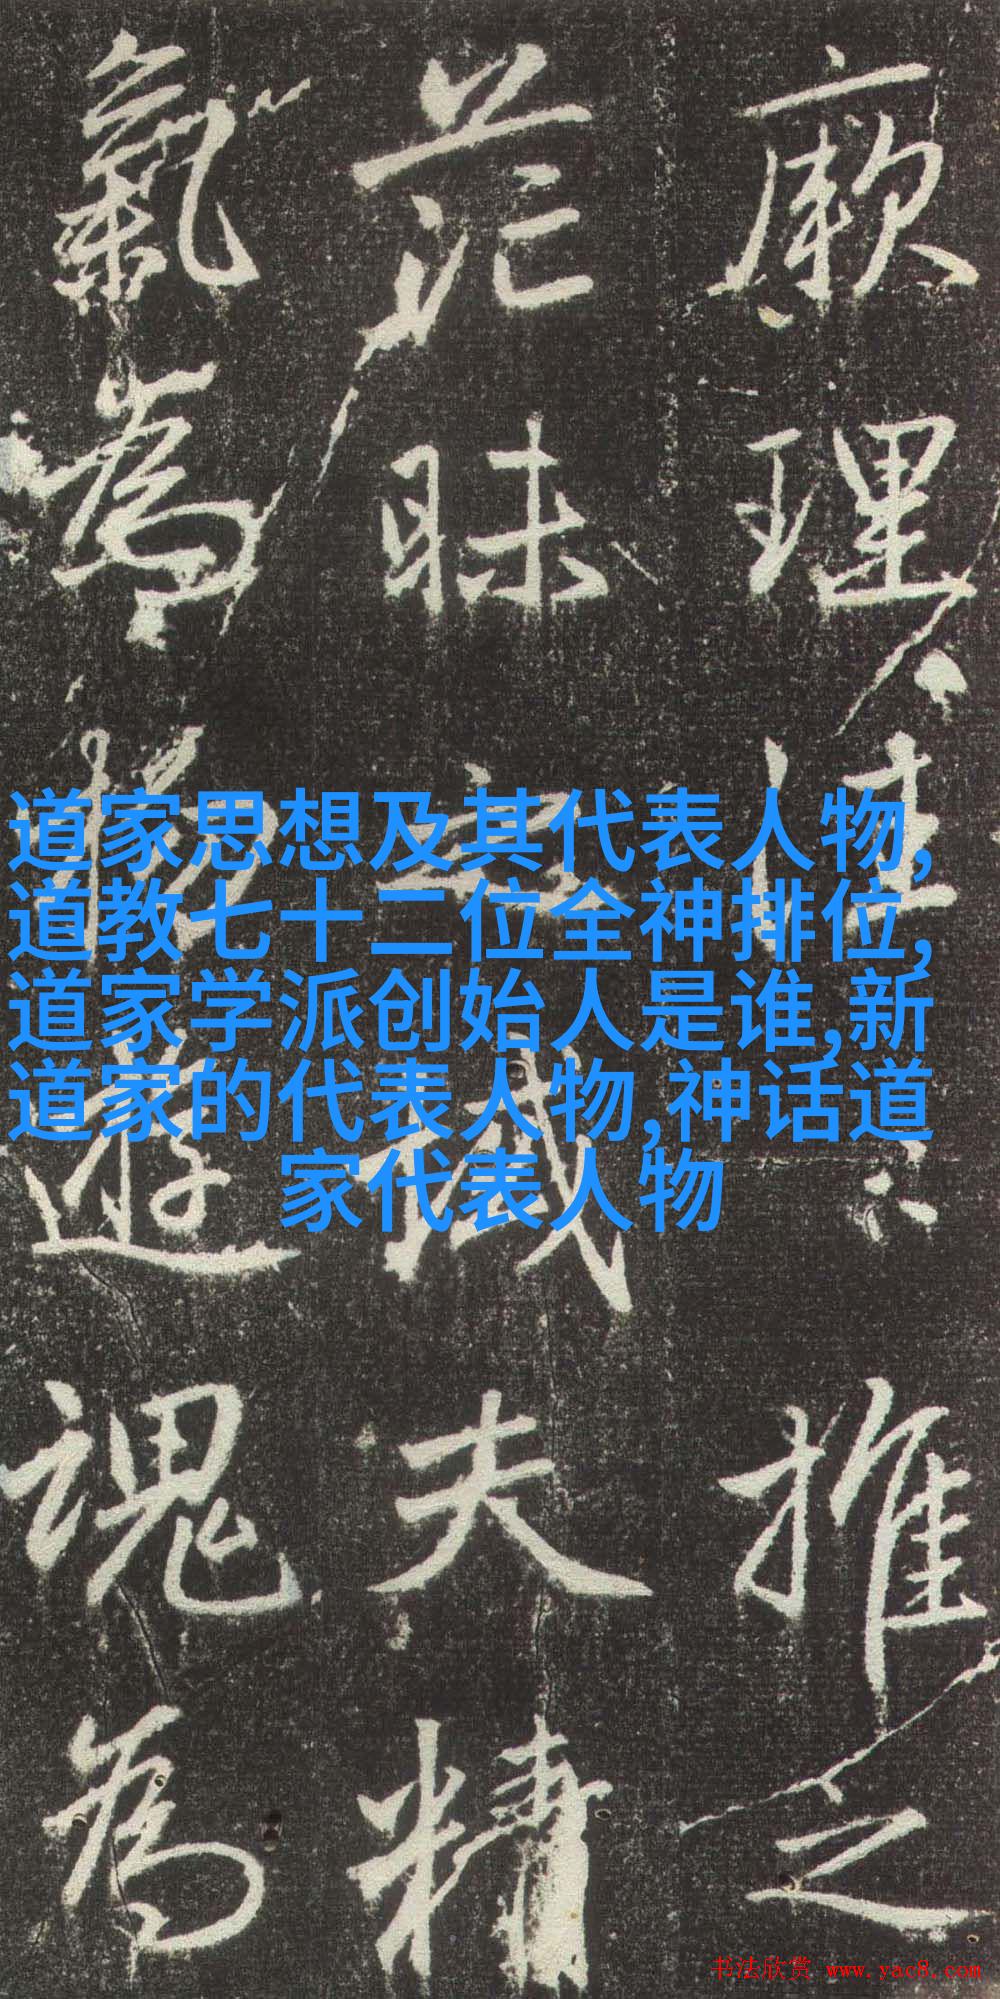 厥理惟推之
茫昧夫精
氣為物遊魂為
道家思想及其代表人物,
道教七十二位全神排位,
道家学派创始人是谁,新
道家的代表人物,神话道
家代表人物
书法欣赏 www.yac8.com